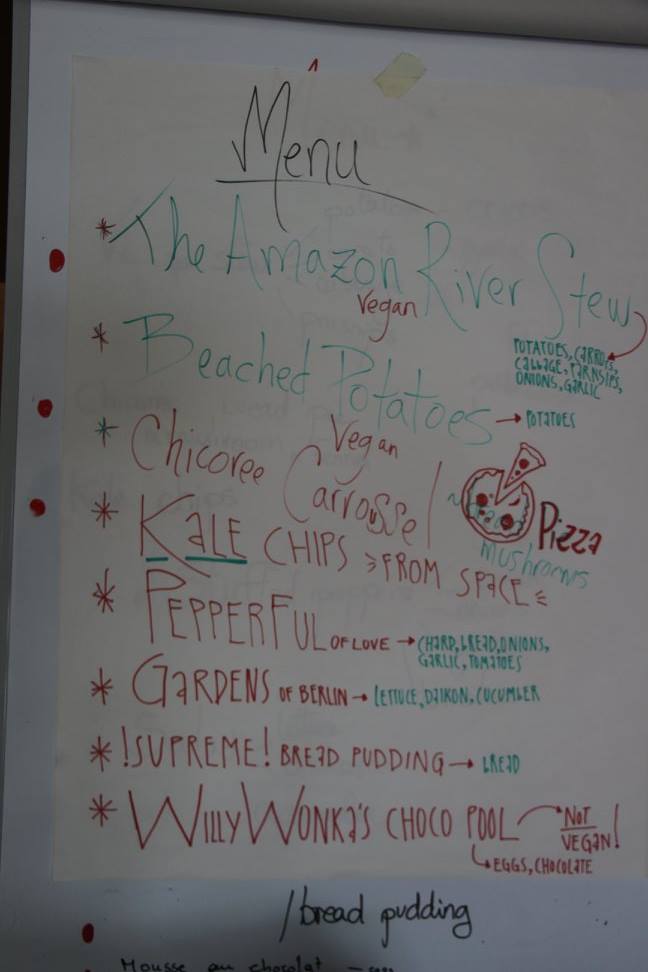 Menu
* The Amazon River Stew
Vegan
POTATOES, CARROTS,
CABBAGE, PARNSIPS,
ONIONS, GARLIC
* Beached Potatoes → POTATOES
* Chicoree Vegan
Carroussel
Pizza
mushrooms
* KALE CHIPS FROM SPACE
* PEPPERFUL OF LOVE → CHARD, BREAD, ONIONS,
GARLIC, TOMATOES
* GARDENS OF BERLIN → LETTUCE, DAIKON, CUCUMBER
* !SUPREME! BREAD PUDDING → BREAD
* WILLY WONKA'S CHOCO POOL → NOT
VEGAN!
EGGS, CHOCOLATE
/bread pudding
Mousse au chocolat